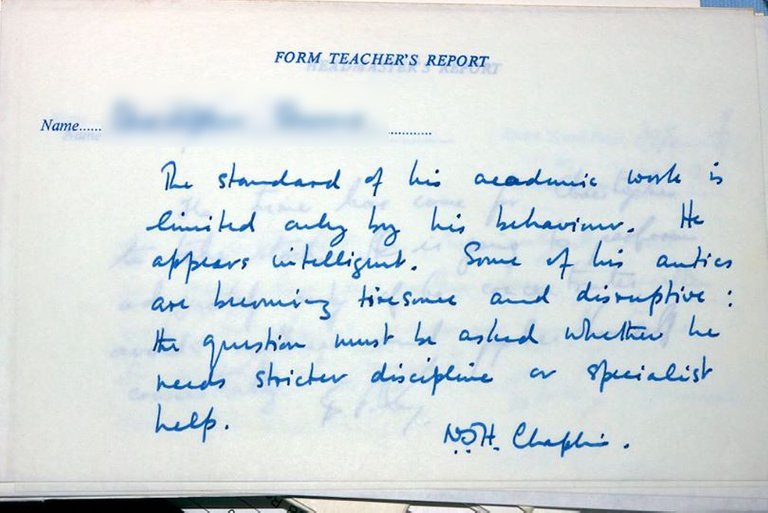 FORM TEACHER'S REPORT
HEADMASTER'S REPORT
Name......
...........
The standard of his academic work is
limited only by his behaviour. He
appears intelligent. Some of his antics
are becoming tiresome and disruptive :
the question must be asked whether he
needs stricter discipline or specialist
help.
N.J.H. Chaplin.